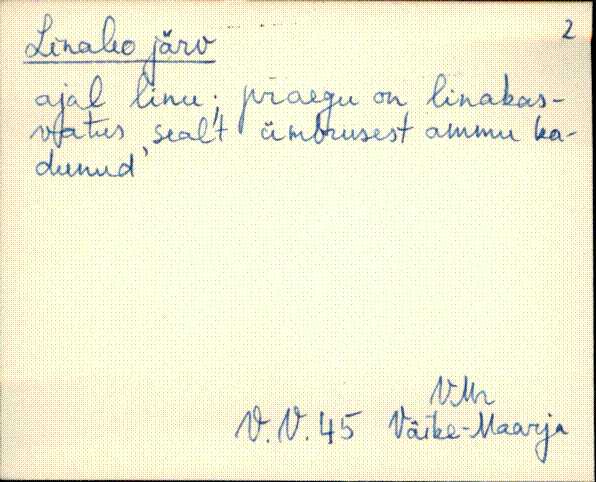 Linaleo järv 2
ajal linu; praegu on linakas-
vatus sealt ümbrusest ammu ka-
dunud
VMr
V.V. 45 Väike-Maarja